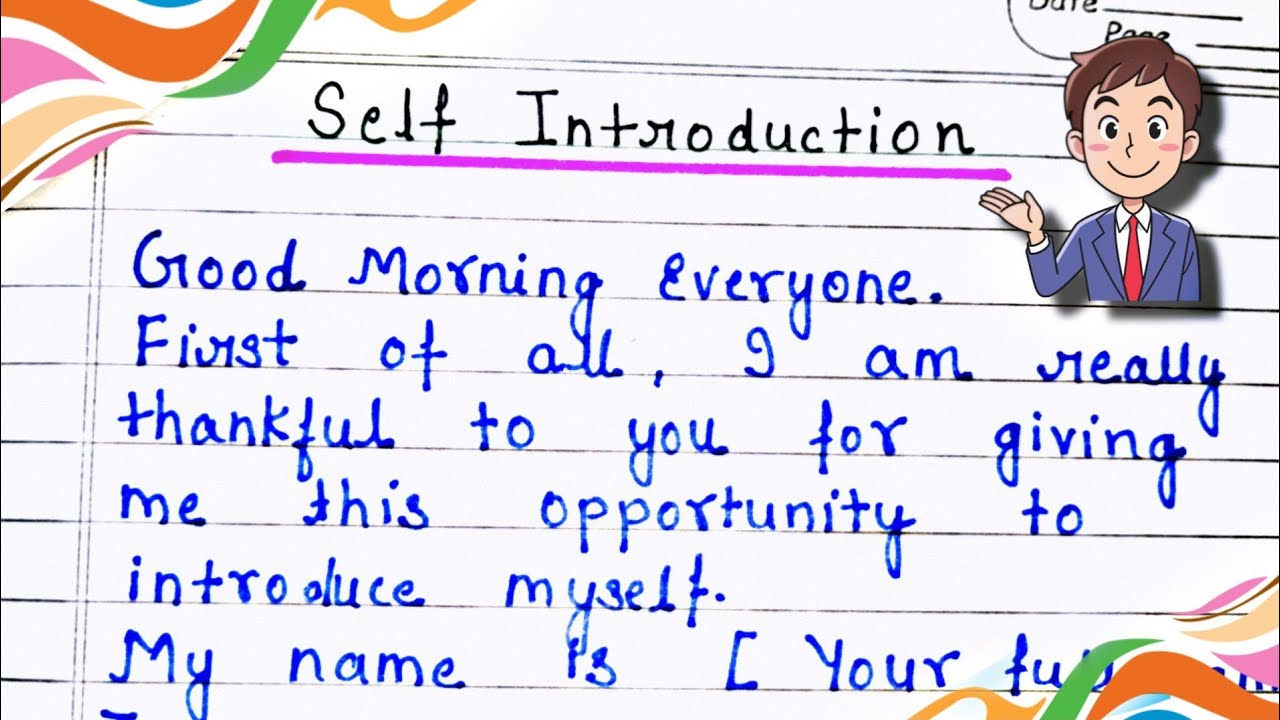 Date
Page
Self Introduction
Good Morning Everyone.
First of all, I am really
thankful to you for giving
me this opportunity to
introduce myself.
My name is [ Your